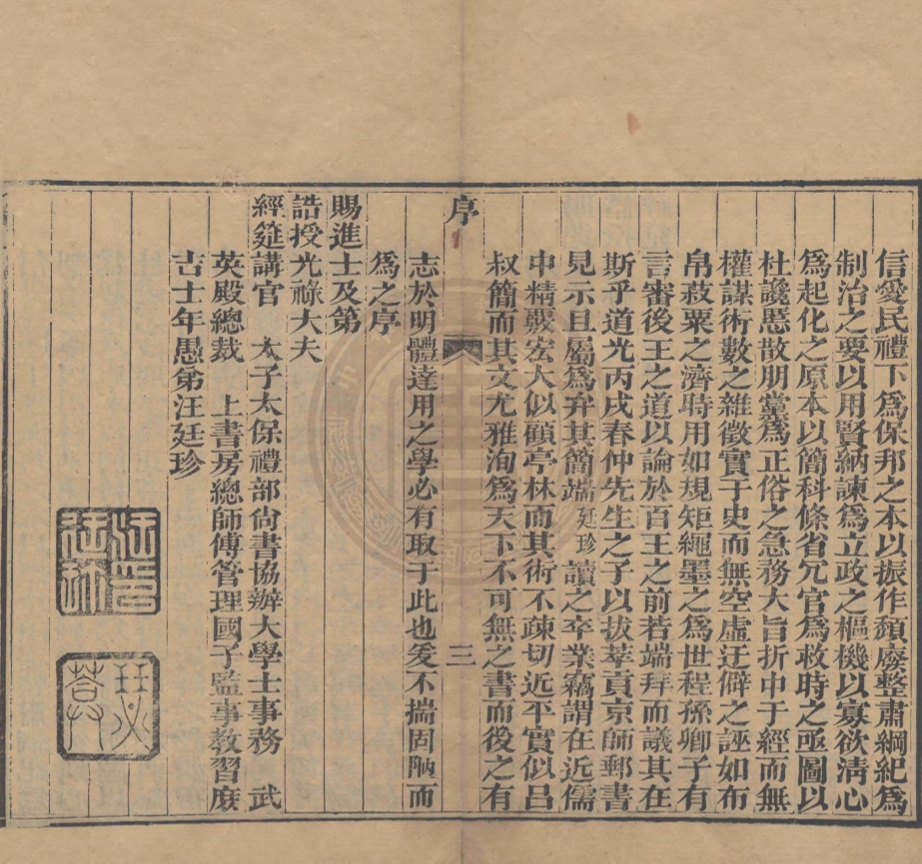 信愛民禮下爲保邦之本以振作頽廢整肅綱紀爲
制治之要以用賢納諫爲立政之樞機以寡欲淸心
爲起化之原本以簡科條省冗官爲救時之亟圖以
杜讒慝散朋黨爲正俗之急務大旨折中于經而無
權謀術數之雜徵實于史而無空虛迂僻之誣如布
帛菽粟之濟時用如規矩繩墨之爲世程孫卿子有
言審後王之道以論於百王之前若端拜而議其在
斯乎道光丙戌春仲先生之子以拔萃貢京師郵書
見示且屬爲弁其簡端廷珍讀之卒業竊謂在近儒
中精覈宏大似顧亭林而其術不疎切近平實似呂
叔簡而其文尤雅洵爲天下不可無之書而後之有
序
三
志於明體達用之學必有取于此也爰不揣固陋而
爲之序
賜進士及第
誥授光祿大夫
經筵講官 太子太保禮部尙書協辦大學士事務 武
英殿總裁 上書房總師傅管理國子監事敎習庶
吉士年愚弟汪廷珍
汪廷珍印
瑟菴